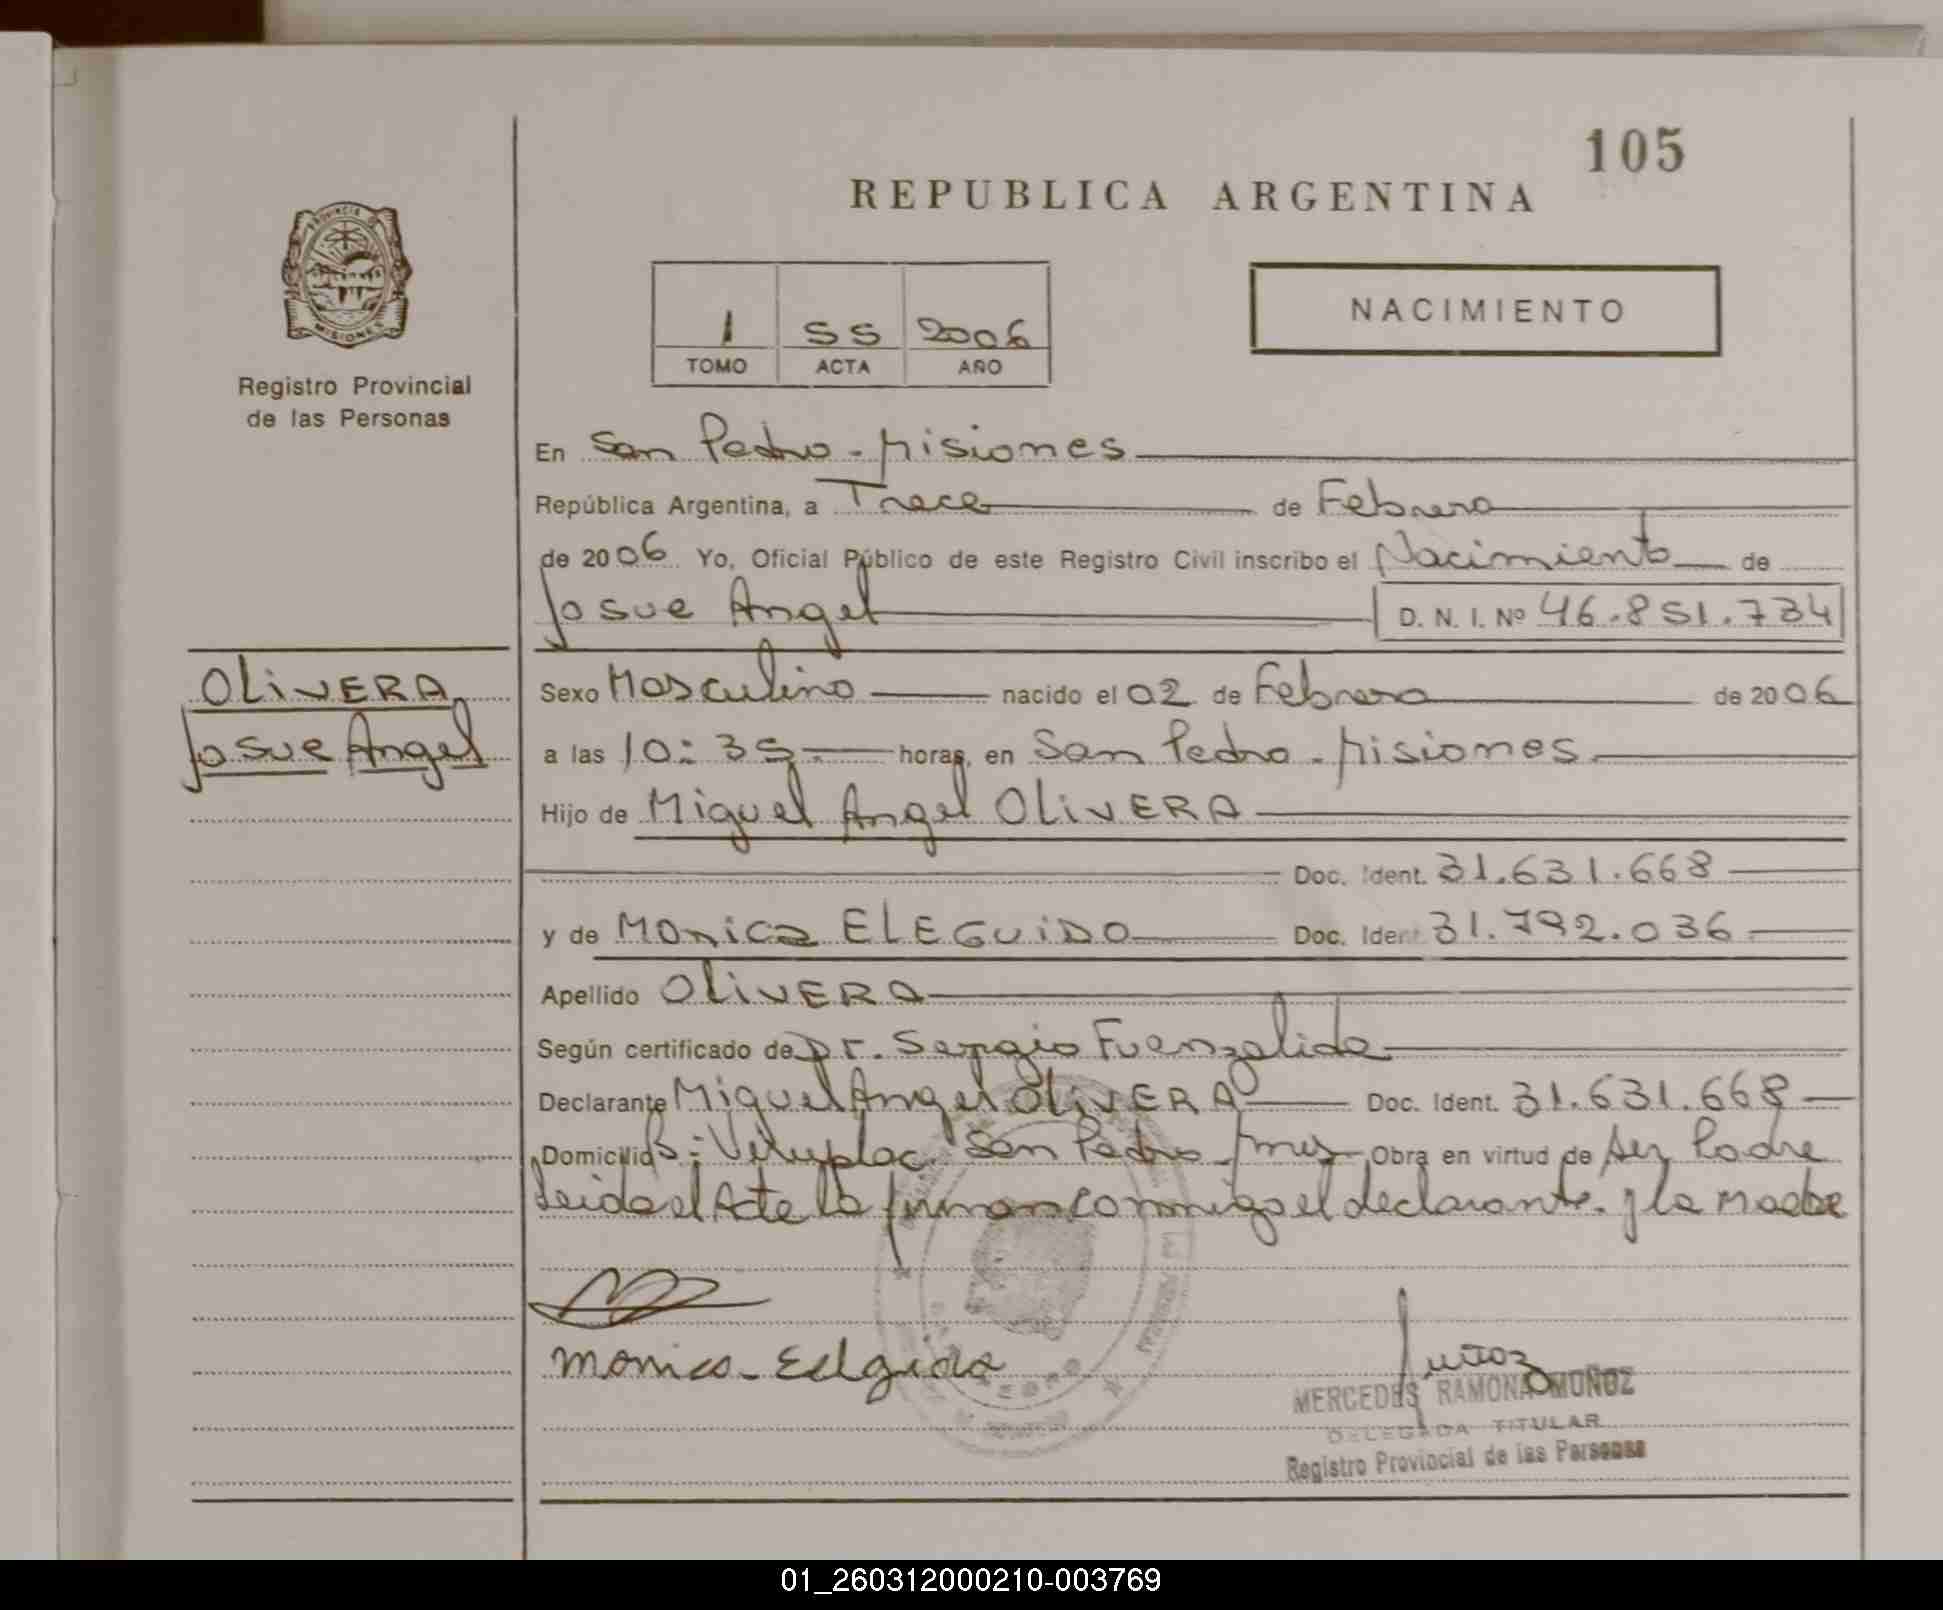 105
REPUBLICA ARGENTINA
PROVINCIA DE
MISIONES
Registro Provincial
de las Personas
1 55 2006
TOMO ACTA AÑO
NACIMIENTO
En San Pedro - Misiones
República Argentina, a Trece de Febrero
de 2006 Yo, Oficial Público de este Registro Civil inscribo el Nacimiento de
Josue Angel D. N. I. Nº 46.851.734
OLiVERA
Josue Angel
Sexo Masculino nacido el 02 de Febrero de 2006
a las 10:35 horas, en San Pedro - Misiones
Hijo de Miguel Angel OLiVERA
Doc. Ident. 31.631.668
y de Monica ELEGUiDO Doc. Ident. 31.792.036
Apellido OLiVERA
Según certificado de Dr. Sergio Fuenzalida
Declarante Miguel Angel OLiVERA Doc. Ident. 31.631.668
Domicilio B: San Pedro - Mnes Obra en virtud de ser Padre
Leida el Acta la firman conmigo el declarante y la Madre
Monica
Muñoz
MERCEDES RAMONA MUÑOZ
DELEGADA TITULAR
Registro Provincial de las Personas
01_260312000210-003769